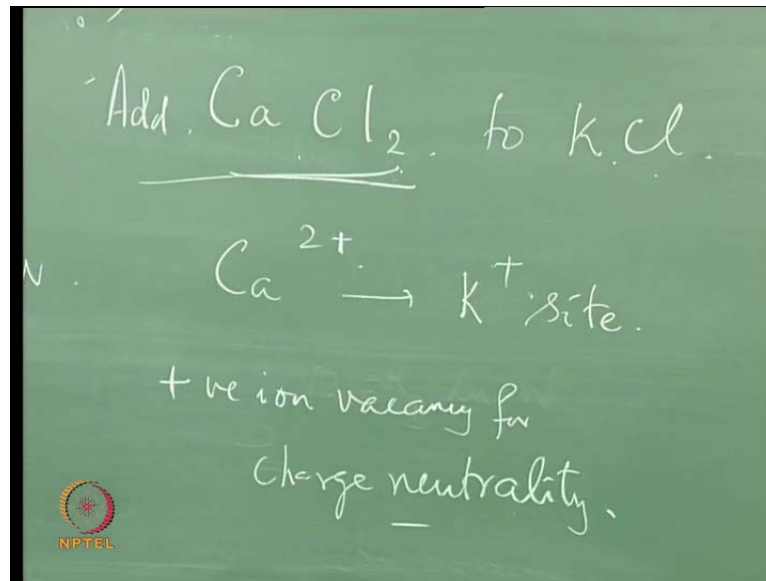 Add. Ca Cl₂. to K.Cl.
N.
Ca²⁺. → K⁺ site.
+ve ion vacancy for
charge neutrality.
NPTEL